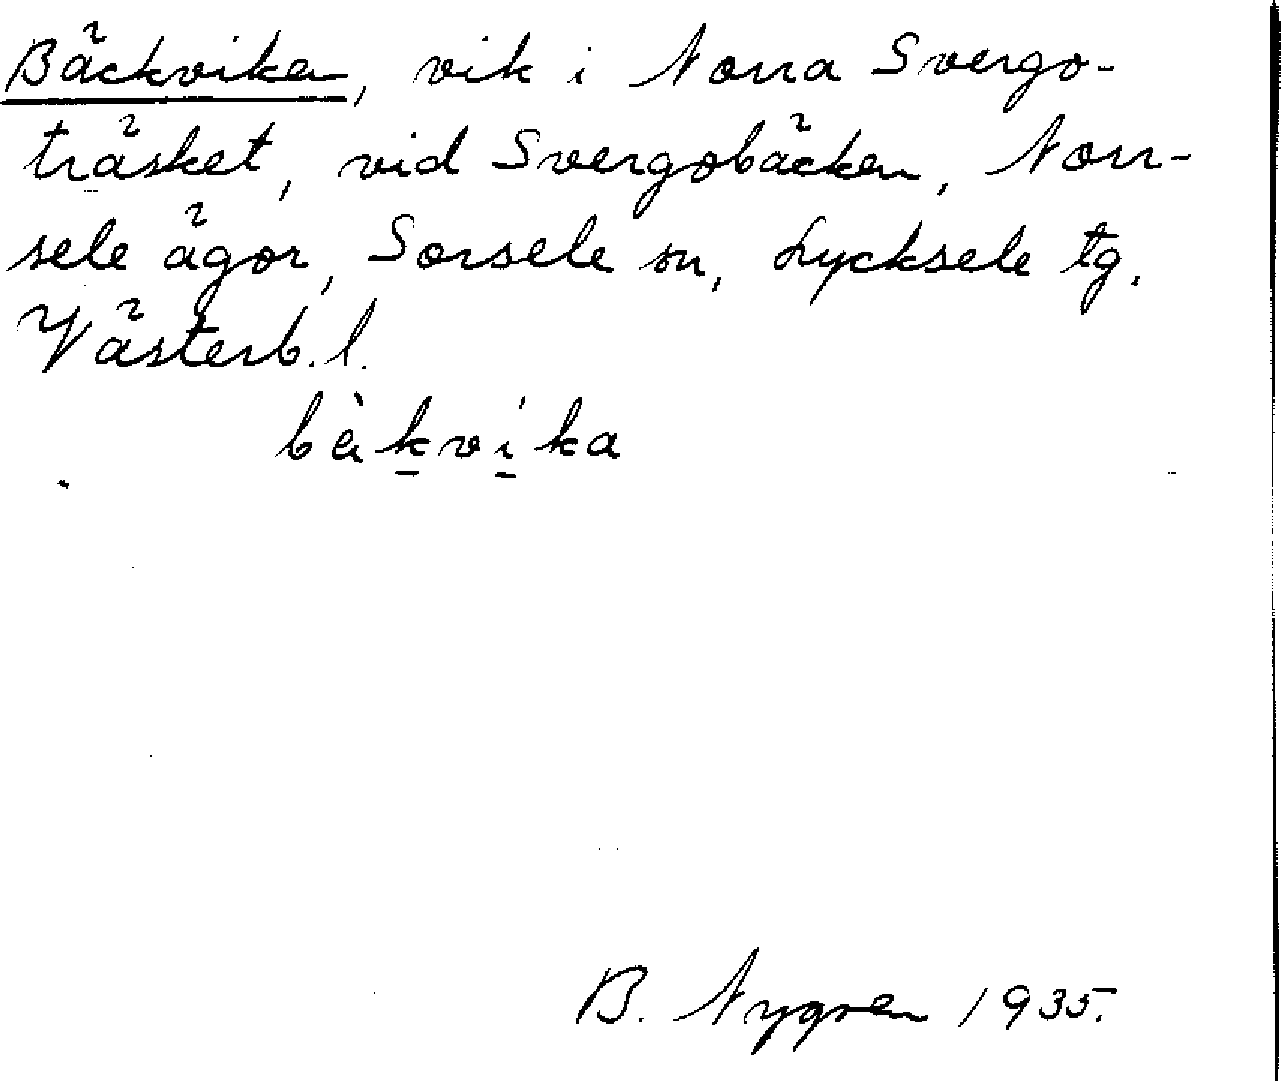 Bäckviken, vik i Norra Svergo-
träsket, vid Svergobäcken, Norr-
sele ägor, Sorsele sn, Lycksele tg.
Västerb. l.
bàkvika
B. Nygren 1935.